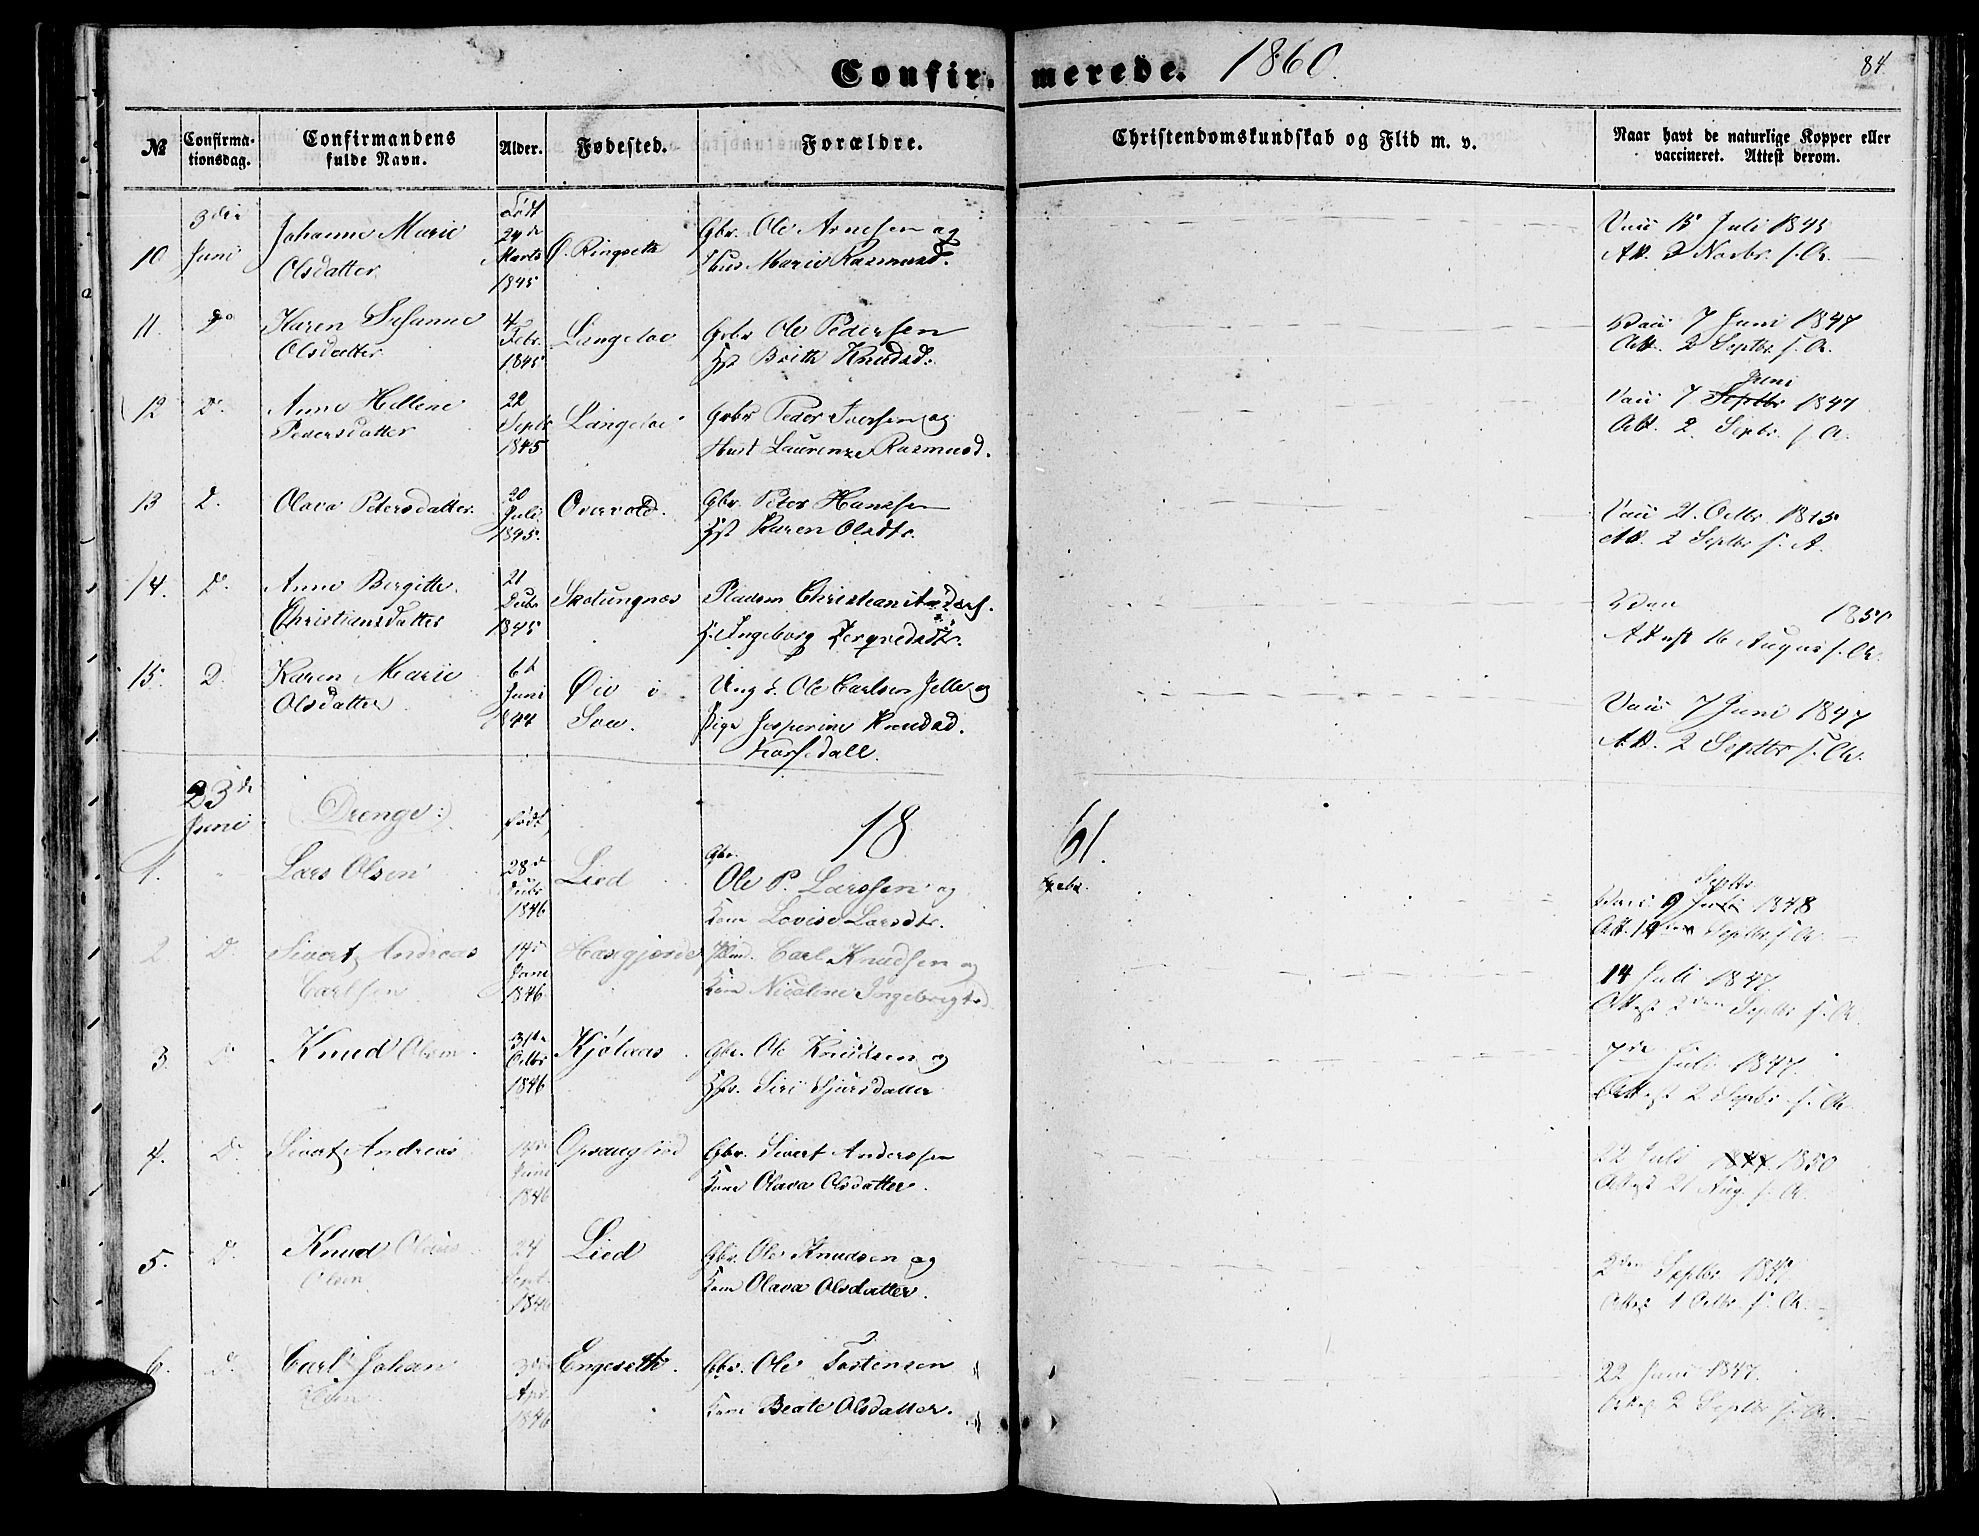 Confirmerede. 1860. 84
№ Confirmationsdag. Confirmandens fulde Navn. Alder. Fødested. Forældre. Christendomskundskab og Flid m. v. Naar havt de naturlige Kopper eller vaccineret. Attest derom.
10 Juni Johanne Marie Olsdatter Født 24de Marts 1845 Ø. Ringseth Gbr. Ole Arnesen og Marie Rasmusd. Juli 1845
Att. 2 Novbr. s. A.
11. Do Karen Susanne Olsdatter 4 Febr. 1845 Langeloe Gbr Ole Pedersen Brith Knudsd. 7 Juni 1847
Att. 2 Septbr. s. A.
12 D. Anne Hellene Pedersdatter 22 Septr 1845 Langeloe Gbr Peder Iversen og Hust Laurenze Rasmusd. 7 Septbr Juni 1847
Att. 2. Septbr. s. A.
13 D. Olava Petersdatter. 20 Juli 1845. Overvold. Gbr. Peter Hanssen Karen Olsdtr. 21. Octbr. 1845
Att. 2 Septbr s. A.
14. D. Anne Bergitte Christiansdatter 21 1845 Skotungnæs Pladsm Christian Ingeborg 1850
Attest 16 August s. A.
15. D. Karen Marie Olsdatter 6te Juni 1844 Øie i Ung k. Ole Carlsen Jelle og Pige Jesperine Knudsd. 7 Juni 1847
Att. 2 Septbr s. A.
23de Juni Drenge: Født 18 61.
1. Lars Olsen 28de 1846 Lied Gbr. Ole P. Larssen og Kone Lovise Larsdtr. 9 Juli Septbr 1848
Septbr s. A.
2. D. Sivert Andreas Carlsen 14de Juni 1846 Carl Knudsen og Kone Nicoline Ingebrigtsd. 14 Juli 1847
Attest 2den Septbr s. A.
3. D. Knud Olsen. Octbr 1846 Kjølaas. Gbr. Ole Knudsen og Siri Sjursdatter 7de Juli 1847.
Attest 2 Septbr s. A.
4. D. Sivert Andreas 14de Juni 1846 Gbr. Sivert Anderssen Kone Olava Olsdatter. 22 Juli 1847 1850
Attest 21 Aug. s. A.
5. D. Knud Olaus Olsen 24 Sept. 1846 Lied Gbr. Ole Knudsen og Kone Olava Olsdatter. 2den Septbr 1847
Attest 1 Octbr. s. A.
6. D. Carl Johan Olsen 3de Apr. 1846 Engeseth. Gbr. Ole Tostensen Kone Beate Olsdatter. 22 Juni 1847.
Attest 2 Septbr s. A.